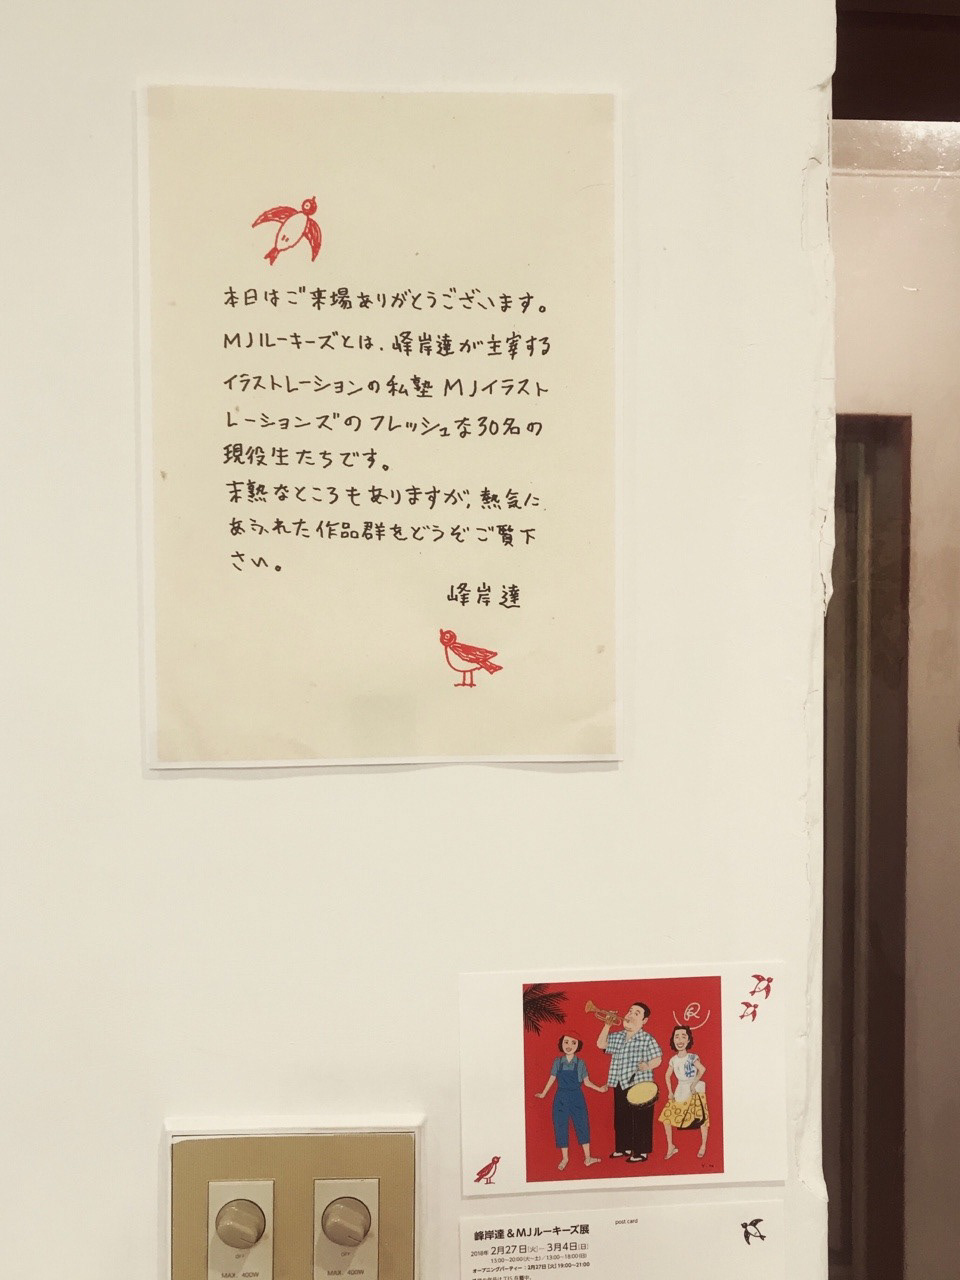 本日はご来場ありがとうございます。
MJルーキーズとは、峰岸達が主宰する
イラストレーションの私塾 MJイラスト
レーションズのフレッシュな30名の
現役生たちです。
未熟なところもありますが、熱気に
あふれた作品群をどうぞご覧下
さい。
峰岸達
post card
峰岸達&MJルーキーズ展
2018年 2月27日[火]―3月4日[日]
15:00―20:00(火―土)／13:00―18:00(日)
オープニングパーティー：2月27日[火]19:00―21:00
OFF
OFF
MAX. 400W
MAX. 400W